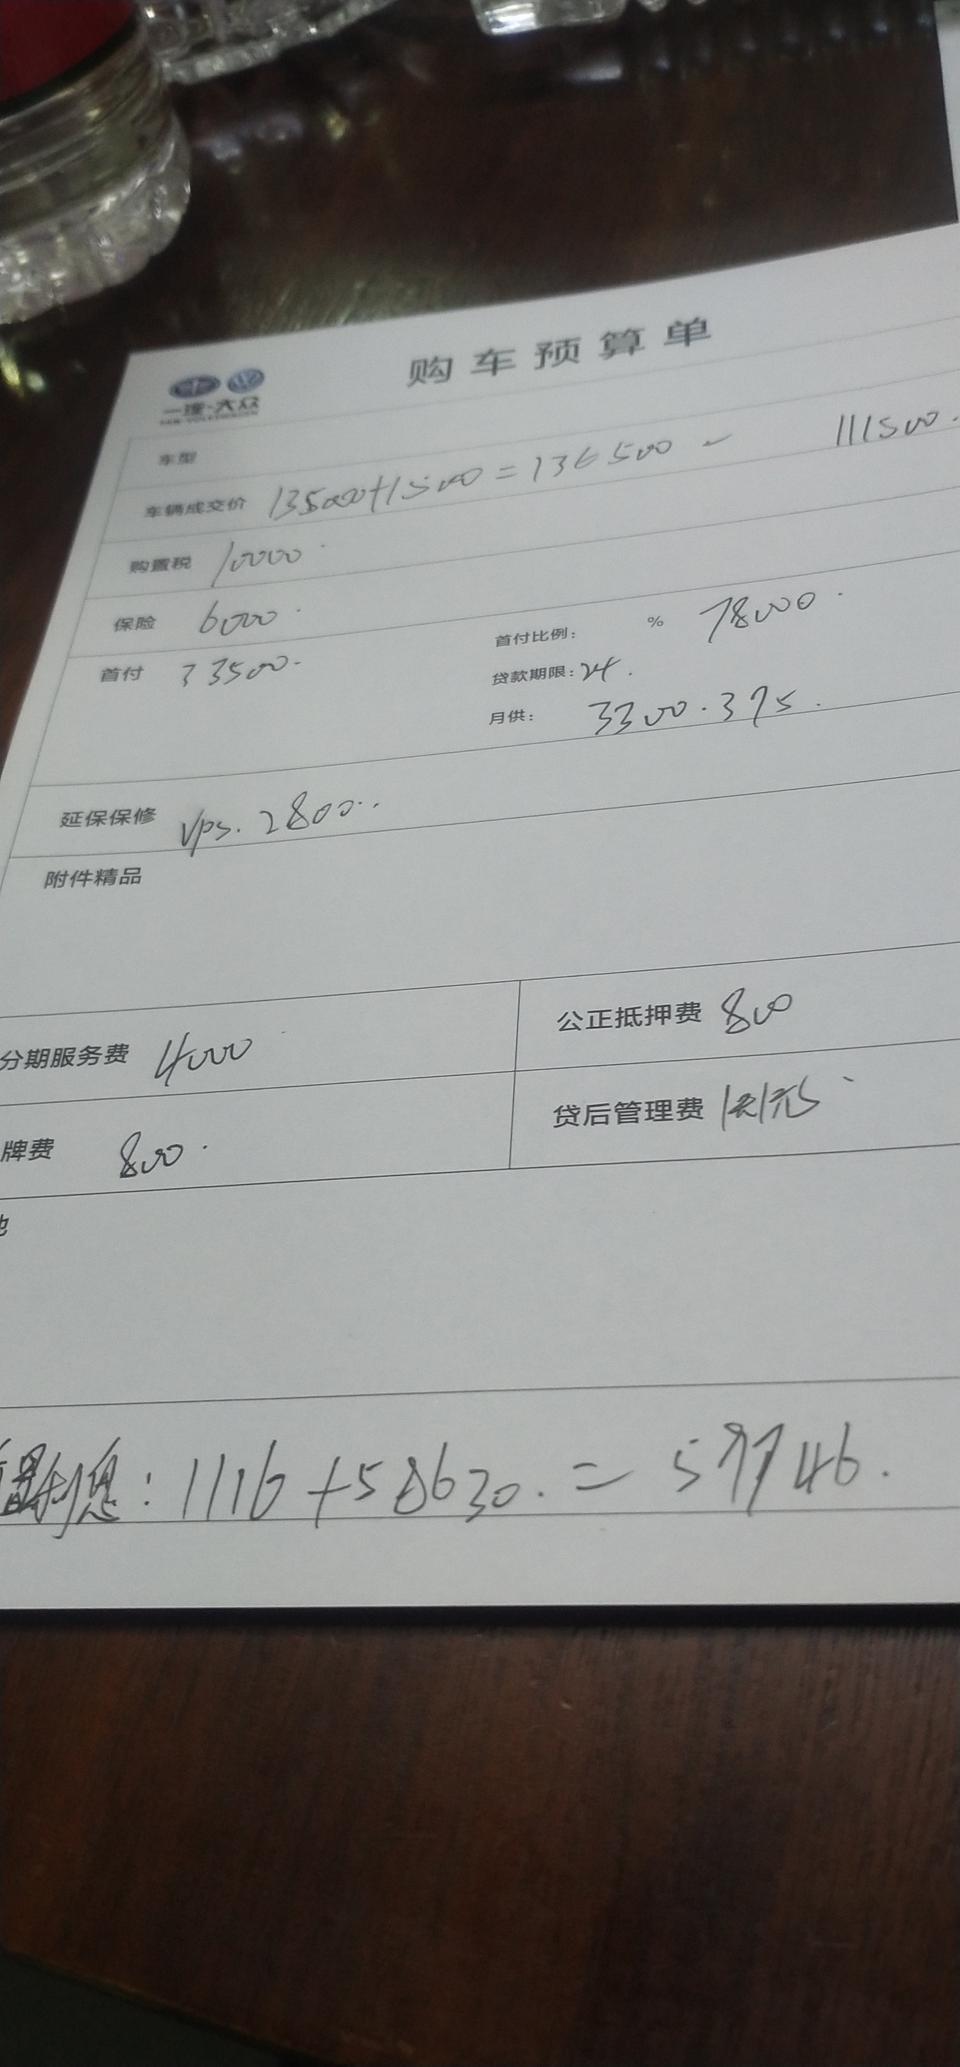 购车预算单
一汽-大众
FAW-VOLKSWAGEN
车型
车辆成交价 135000+1500=136500 111500.
购置税 10000.
保险 6000.
首付 33500. 首付比例: % 78000.
贷款期限: 24.
月供: 3300.375.
延保保修 Vps. 2800..
附件精品
分期服务费 4000 公正抵押费 800
牌费 800. 贷后管理费
利息: 1116+58630.=59746.